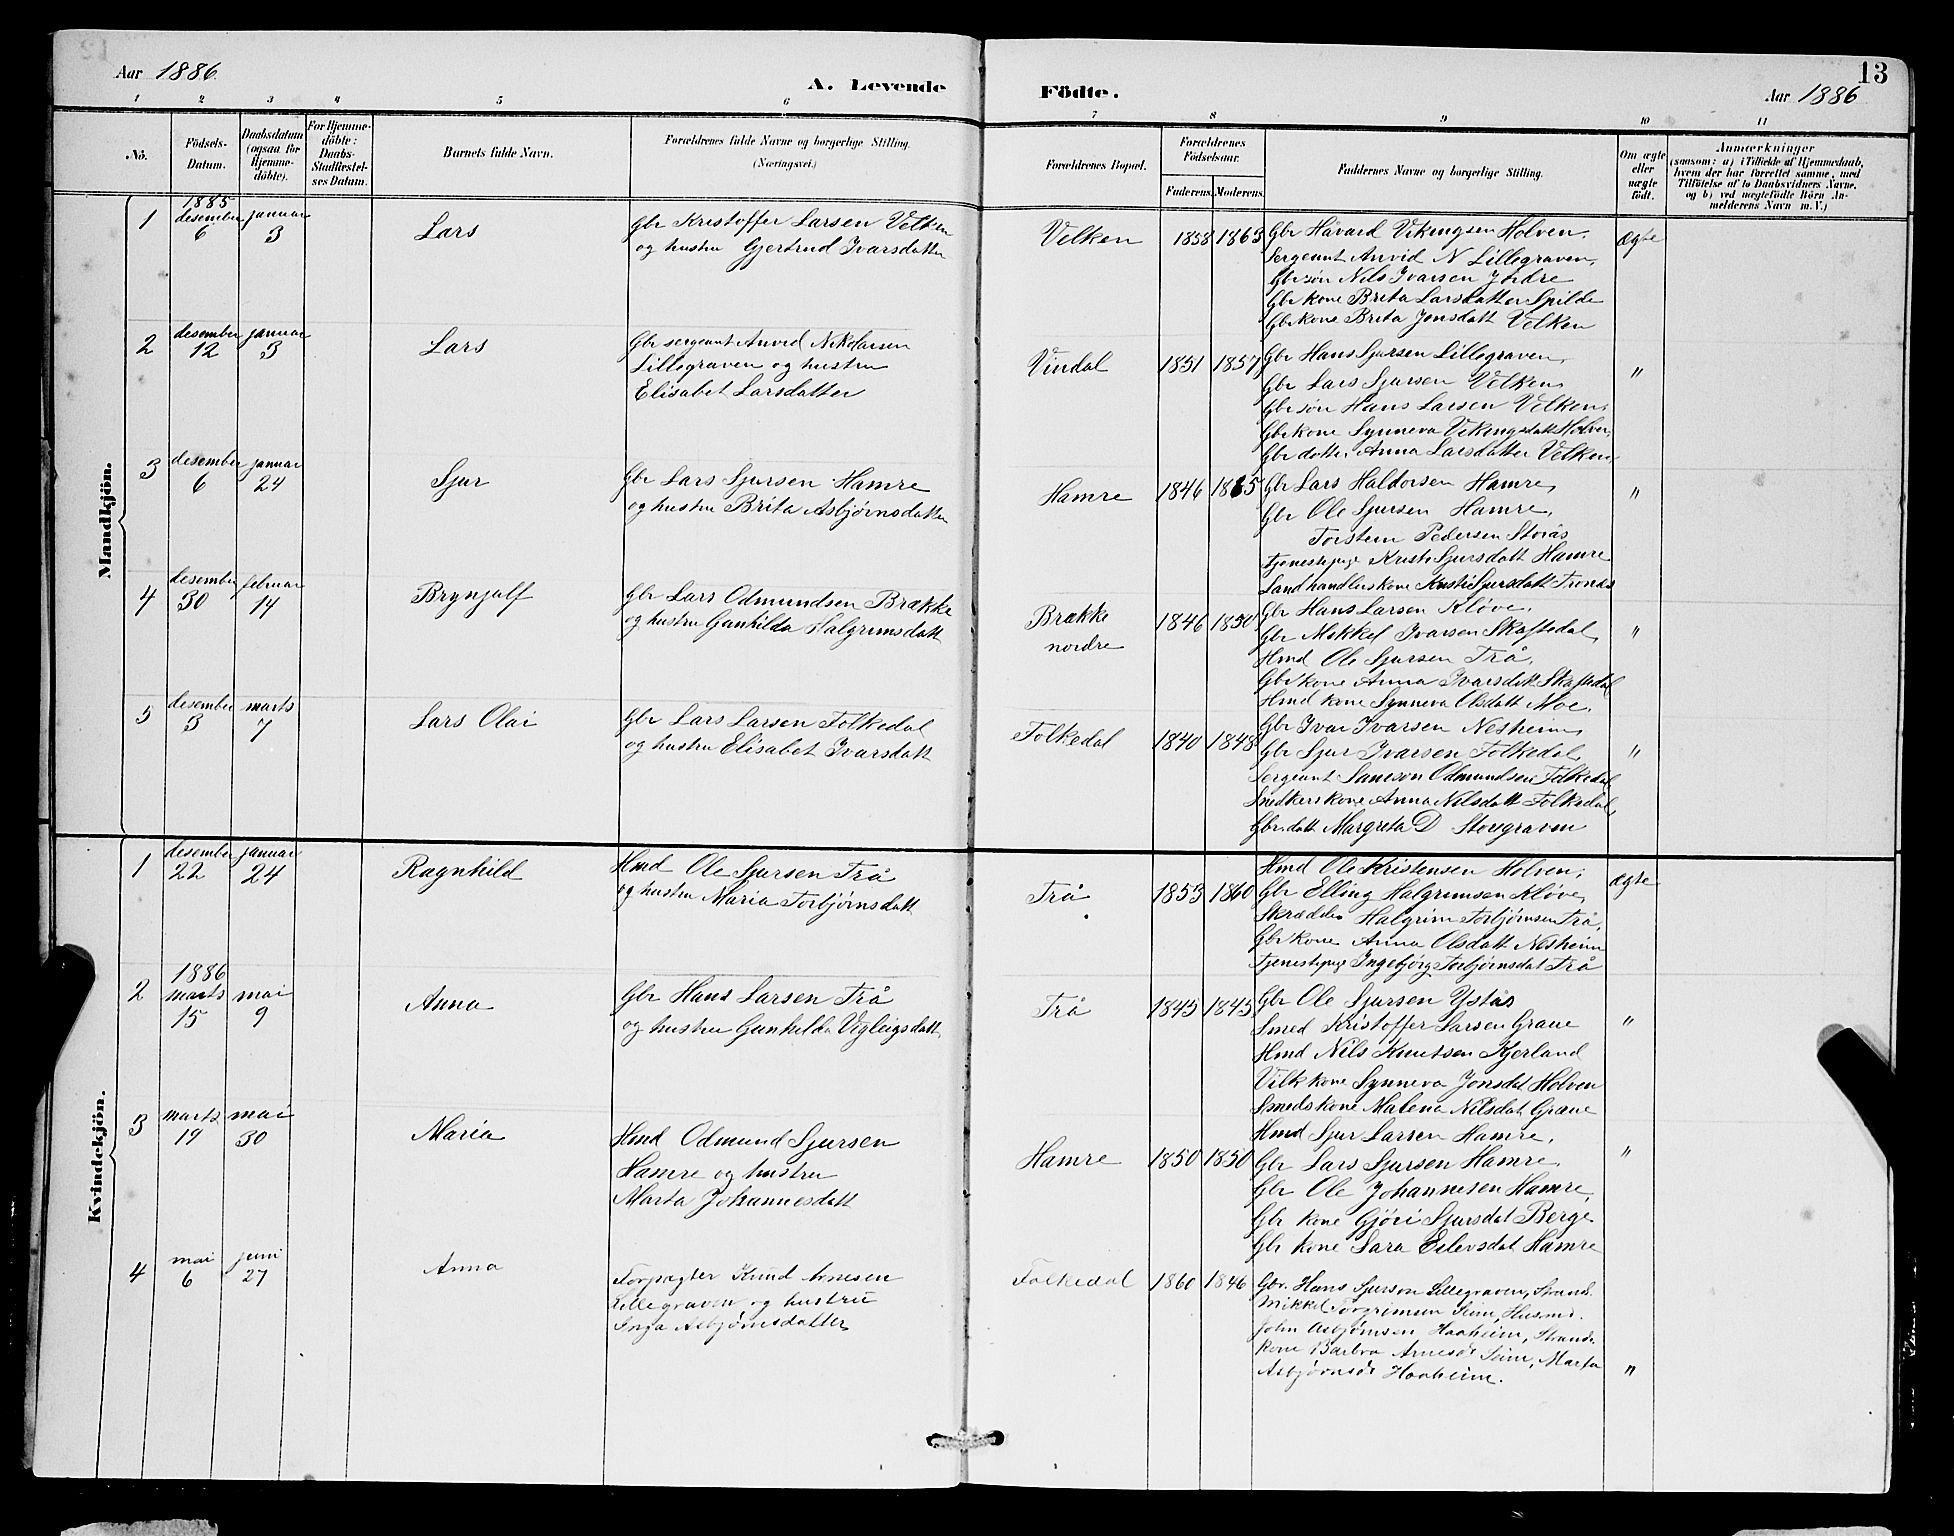 13
Aar 1886. A. Levende Födte. Aar 1886
1 2 3 4 5 6 7 8 9 10 11
No. Födsels-Datum. Daabsdatum (ogsaa for Hjemmedöbte). For Hjemmedöbte: Daabs-Stadfæstelses Datum. Barnets fulde Navn. Forældrenes fulde Navne og borgerlige Stilling. (Næringsvei.) Forældrenes Bopæl. Forældrenes Födselsaar. Faderens. Moderens. Faddernes Navne og borgerlige Stilling. Om ægte eller uægte födt. Anmærkninger (saasom: a) i Tilfælde af Hjemmedaab, hvem der har forrettet samme, med Tilföielse af to Daabsvidners Navne. og b) ved uægtefödte Börn Anmelderens Navn m. V.)
Mandkjön.
1 1885 desember 6 januar 3 Lars Gbr Kristoffer Larsen Velken
og hustru Gjertrud Ivarsdatter
Velken 1858 1863 Gbr Håvard Vikingsen Holven. Ægte
Sergeant Anvid N Lillegraven,
Gbr søn Nils Ivarsen Jordre
Gbr kone Brita Larsdatter Spilde
Gbr kone Brita Jonsdatt Velken
2 desember 12 januar 3 Lars Gbr sergeant Anvid Nikolarsen
Lillegraven og hustru
Elisabet Larsdatter
Vindal 1851 1857 Gbr Hans Sjursen Lillegraven, "
Gbr Lars Sjursen Velken,
Gbr søn Hans Larsen Velken,
Gbr kone Synneva Vikingsdatt Holven,
Gbr dotter Anna Larsdatter Velken,
3 desember 6 januar 24 Sjur Gbr Lars Sjursen Hamre
og hustru Brita Asbjørnsdatter
Hamre 1846 1865 Gbr Lars Haldorsen Hamre, "
Gbr Ole Sjursen Hamre,
Torstein Pedersen Storås
tjenestepige Kristi Sjursdatt Hamre
Landhandlerskone Kristi Sjursdatt Tronås
4 desember 30 februar 14 Brynjulf Gbr Lars Odmundsen Brække
og hustru Gunhilda Halgrimsdatt
Brække nordre 1846 1850 Gbr Hans Larsen Kløve, "
Gbr Mikkel Ivarsen Skaftedal,
Hmd Ole Sjursen Trå,
Gbr kone Anna Ivarsdatt Skaftedal
Hmd kone Synneva Olsdatt Moe,
5 desember 3 marts 7 Lars Olai Gbr Lars Larsen Folkedal
og hustru Elisabet Ivarsdatt
Folkedal 1840 1848 Gbr Ivar Ivarsen Nesheim, "
Gbr Sjur Ivarsen Folkedal,
Sergeant Samson Odmundsen Folkedal
Snedkerskone Anna Nilsdatt Folkedal,
Gbr.datt Margreta D Storegraven
Kvindekjön.
1 desember 22 januar 24 Ragnhild Hmd Ole Sjursen Trå
og hustru Maria Torbjørnsdatt
Trå 1853 1860 Hmd Ole Kristensen Holven, Ægte
Gbr Elling Halgrimsen Kløve,
Skrædder Halgrim Torbjørnsen Trå,
Gbr kone Anna Olsdatt Nesheim
tjenestepige Ingebjørg Torbjørnsdat Trå
2 1886 marts 15 mai 9 Anna Gbr Hans Larsen Trå
og hustru Gunhilda Vigleigsdatt.
Trå 1845 1845 Gbr Ole Sjursen Ystås "
Smed Kristoffer Larsen Graue
Hmd Nils Knutsen Kjerland
Vilk kone Synneva Jonsdat Holven
Smeds kone Malena Nilsdat Graue
3 marts 19 mai 30 Maria Hmd Odmund Sjursen
Hamre og hustru
Marta Johannesdatt
Hamre 1850 1850 Hmd Sjur Larsen Hamre, "
Gbr Lars Sjursen Hamre,
Gbr Ole Johannesen Hamre,
Gbr kone Gjöri Sjursdat Berge
Gbr kone Sara Eilevsdat Hamre
4 mai 6 juni 27 Anna Forpagter Knud Arnesen
Lillegraven og hustru
Inga Asbjørnsdatter
Folkedal 1860 1846 Gbr. Hans Sjurson Lillegraven, Strand.
Mikkel Torgrimsen Seim, Husmd.
John Asbjørnsen Haaheim, Strands.
kone Barbra Arnesdt Seim, Marta
Asbjørnsdt Haaheim. "